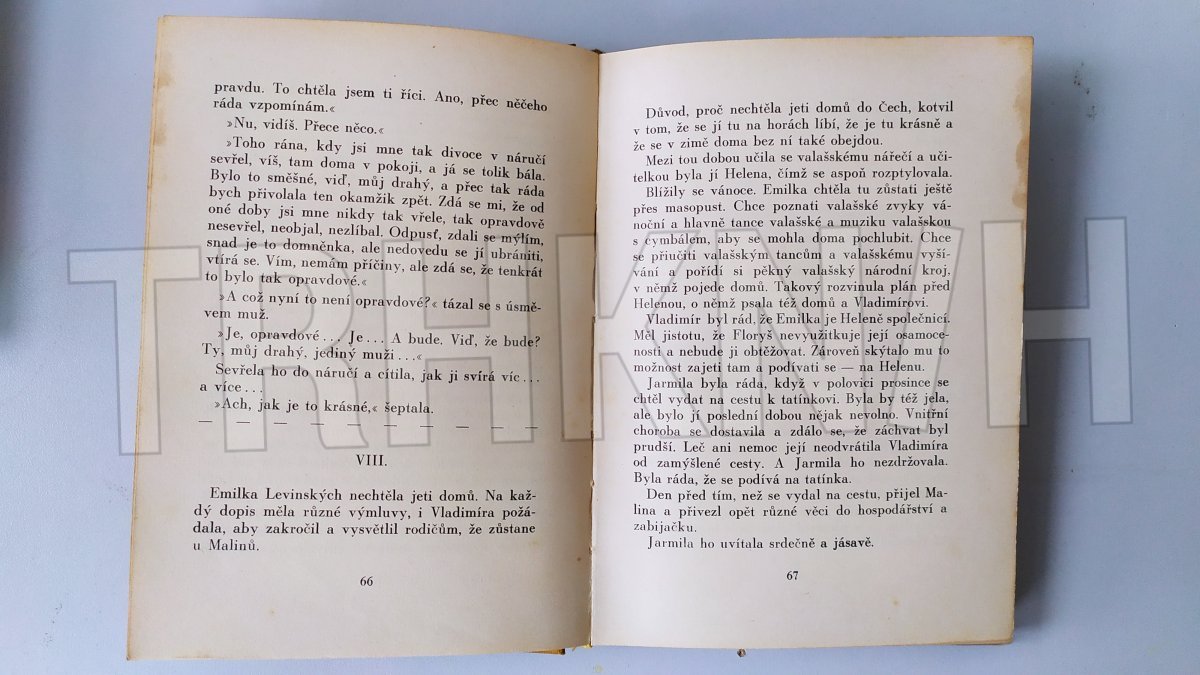 pravdu. To chtěla jsem ti říci. Ano, přec něčeho
ráda vzpomínám.«
»Nu, vidíš. Přece něco.«
»Toho rána, kdy jsi mne tak divoce v náručí
sevřel, víš, tam doma v pokoji, a já se tolik bála.
Bylo to směšné, viď, můj drahý, a přec tak ráda
bych přivolala ten okamžik zpět. Zdá se mi, že od
oné doby jsi mne nikdy tak vřele, tak opravdově
nesevřel, neobjal, nezlíbal. Odpusť, zdali se mýlím,
snad je to domněnka, ale nedovedu se jí ubrániti,
vtírá se. Vím, nemám příčiny, ale zdá se, že tenkrát
to bylo tak opravdové.«
»A což nyní to není opravdové?« tázal se s úsmě-
vem muž.
»Je, opravdové... Je... A bude. Viď, že bude?
Ty, můj drahý, jediný muži...«
Sevřela ho do náručí a cítila, jak ji svírá víc...
a více...
»Ach, jak je to krásné,« šeptala.
— — — — — — — — — —
VIII.
Emilka Levinských nechtěla jeti domů. Na kaž-
dý dopis měla různé výmluvy, i Vladimíra požá-
dala, aby zakročil a vysvětlil rodičům, že zůstane
u Malinů.
66
Důvod, proč nechtěla jeti domů do Čech, kotvil
v tom, že se jí tu na horách líbí, že je tu krásně a
že se v zimě doma bez ní také obejdou.
Mezi tou dobou učila se valašskému nářečí a uči-
telkou byla jí Helena, čímž se aspoň rozptylovala.
Blížily se vánoce. Emilka chtěla tu zůstati ještě
přes masopust. Chce poznati valašské zvyky vá-
noční a hlavně tance valašské a muziku valašskou
s cymbálem, aby se mohla doma pochlubit. Chce
se přiučiti valašským tancům a valašskému vyší-
vání a pořídí si pěkný valašský národní kroj,
v němž pojede domů. Takový rozvinula plán před
Helenou, o němž psala též domů a Vladimírovi.
Vladimír byl rád, že Emilka je Heleně společnicí.
Měl jistotu, že Floryš nevyužitkuje její osamoce-
nosti a nebude ji obtěžovat. Zároveň skýtalo mu to
možnost zajeti tam a podívati se — na Helenu.
Jarmila byla ráda, když v polovici prosince se
chtěl vydat na cestu k tatínkovi. Byla by též jela,
ale bylo jí poslední dobou nějak nevolno. Vnitřní
choroba se dostavila a zdálo se, že záchvat byl
prudší. Leč ani nemoc její neodvrátila Vladimíra
od zamýšlené cesty. A Jarmila ho nezdržovala.
Byla ráda, že se podívá na tatínka.
Den před tím, než se vydal na cestu, přijel Ma-
lina a přivezl opět různé věci do hospodářství a
zabijačku.
Jarmila ho uvítala srdečně a jásavě.
67
TRHKNIH